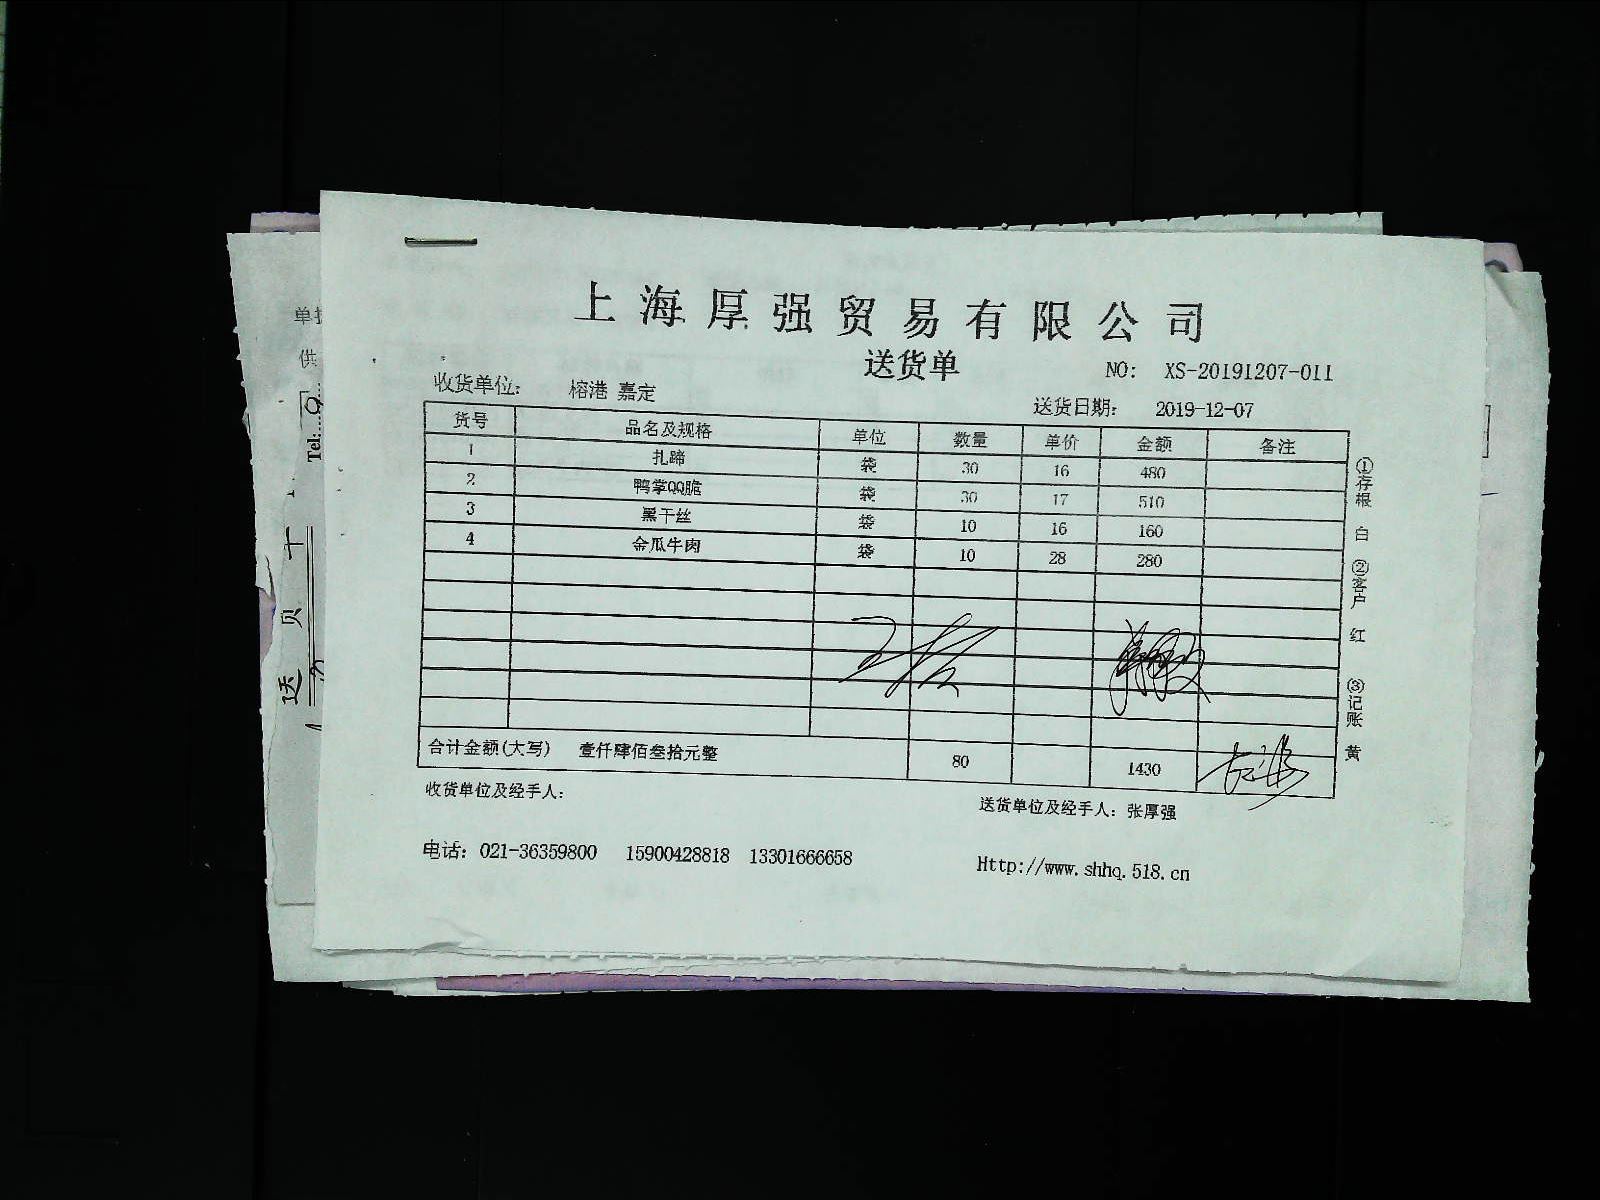 上海厚强贸易有限公司
送货单
NO: XS-20191207-011
收货单位: 榕港 嘉定
送货日期: 2019-12-07
货号 品名及规格 单位 数量 单价 金额 备注
1 扎蹄 袋 30 16 480
2 鸭掌QQ脆 袋 30 17 510
3 黑干丝 袋 10 16 160
4 金瓜牛肉 袋 10 28 280
合计金额(大写) 壹仟肆佰叁拾元整 80 1430
收货单位及经手人:
送货单位及经手人: 张厚强
电话: 021-36359800 15900428818 13301666658
Http://www.shhq.518.cn
①存根 白 ②客户 红 ③记账 黄
供
Tel: